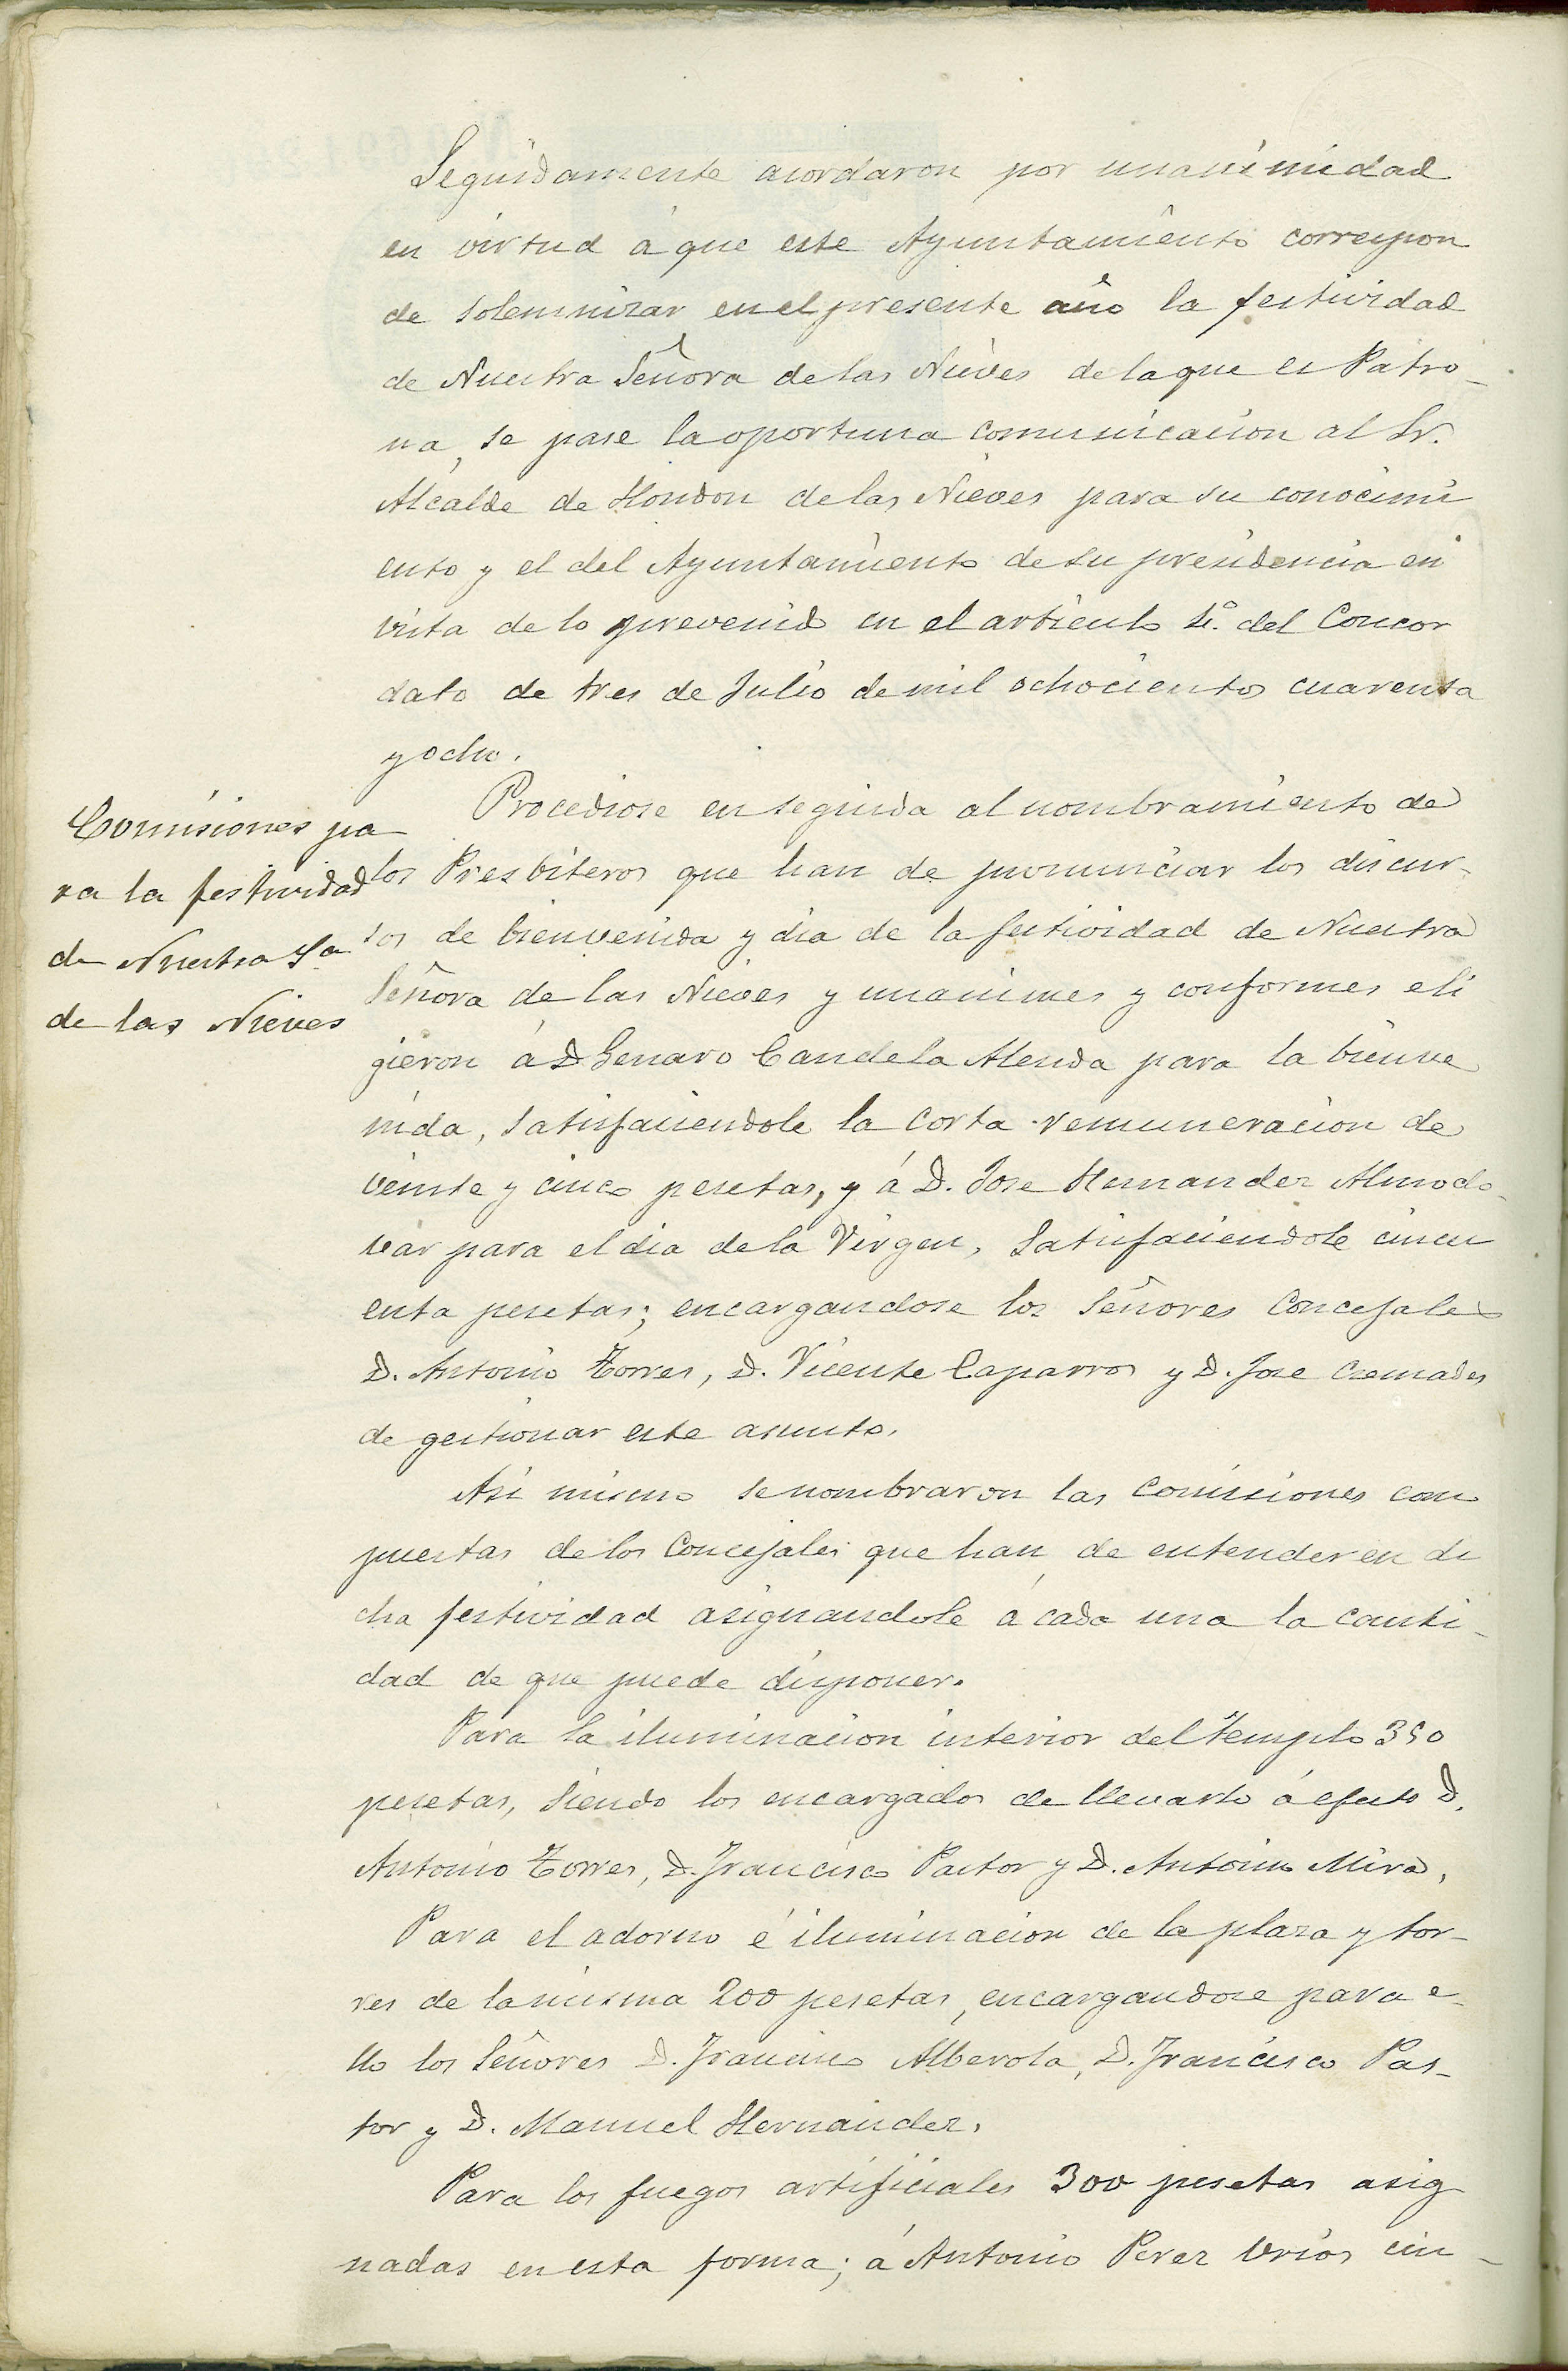 Seguidamente acordaron por unanimidad
en virtud á que este Ayuntamiento correspon
de solemnizar en el presente año la festividad
de Nuestra Señora de las Nieves de la que es Patro-
na, se pase la oportuna comunicacion al Sr.
Alcalde de Hondon de las Nieves para su conocimi
ento y el del Ayuntamiento de su presidencia en
vista de lo prevenido en el articulo del Concor
dato de tres de Julio de mil ochocientos cuarenta
y ocho.
Comisiones pa
ra la festividad
de Nuestra Sa
de las Nieves
Procediose en seguida al nombramiento de
los Presbiteros que han de pronunciar los discur-
sos de bienvenida y dia de la festividad de Nuestra
Señora de las Nieves y unanimes y conformes eli
gieron á D Genaro Candela Alenda para la bienve
nida, satisfaciendole la corta remuneracion de
veinte y cinco pesetas, y á D. Jose Hernandez Almodo-
var para el dia de la Virgen, satisfaciendole cincu
enta pesetas; encargandose los Señores Concejales
D. Antonio Torres, D. Vicente Caparros y D. Jose Cremades
de gestionar este asunto.
Asi mismo se nombraron las comisiones com
puestas de los Concejales que han de entender en di
cha festividad asignandole á cada una la canti-
dad de que puede disponer.
Para la iluminacion interior del templo 350
pesetas, siendo los encargados de llevarlo á efecto D.
Antonio Torres, D. Francisco Pastor y D. Antonio Mira,
Para el adorno é iluminacion de la plaza y tor-
res de la misma 200 pesetas, encargandose para e-
llo los Señores D. Francisco Alberola, D. Francisco Pas-
tor y D. Manuel Hernandez.
Para los fuegos artificiales 300 pesetas asig
nadas en esta forma; á Antonio Perez Urios cin-